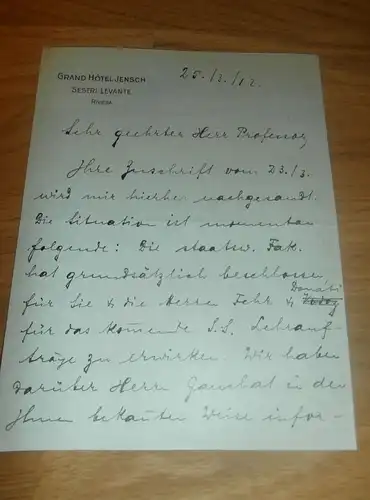 GRAND HÔTEL JENSCH
SESTRI LEVANTE
RIVIERA
25./3./12.
Sehr geehrter Herr Professor,
Ihre Zuschrift vom 23./3.
wird mir hierher nachgesandt.
Die Situation ist momentan
folgende: Die staatsw. Fak.
hat grundsätzlich beschlossen,
für Sie & die Herren Fehr & Donati
für das kommende S.S. Lehrauf-
träge zu erwirken. Wir haben
darüber Herrn Gauchat in der
Ihnen bekannten Weise infor-